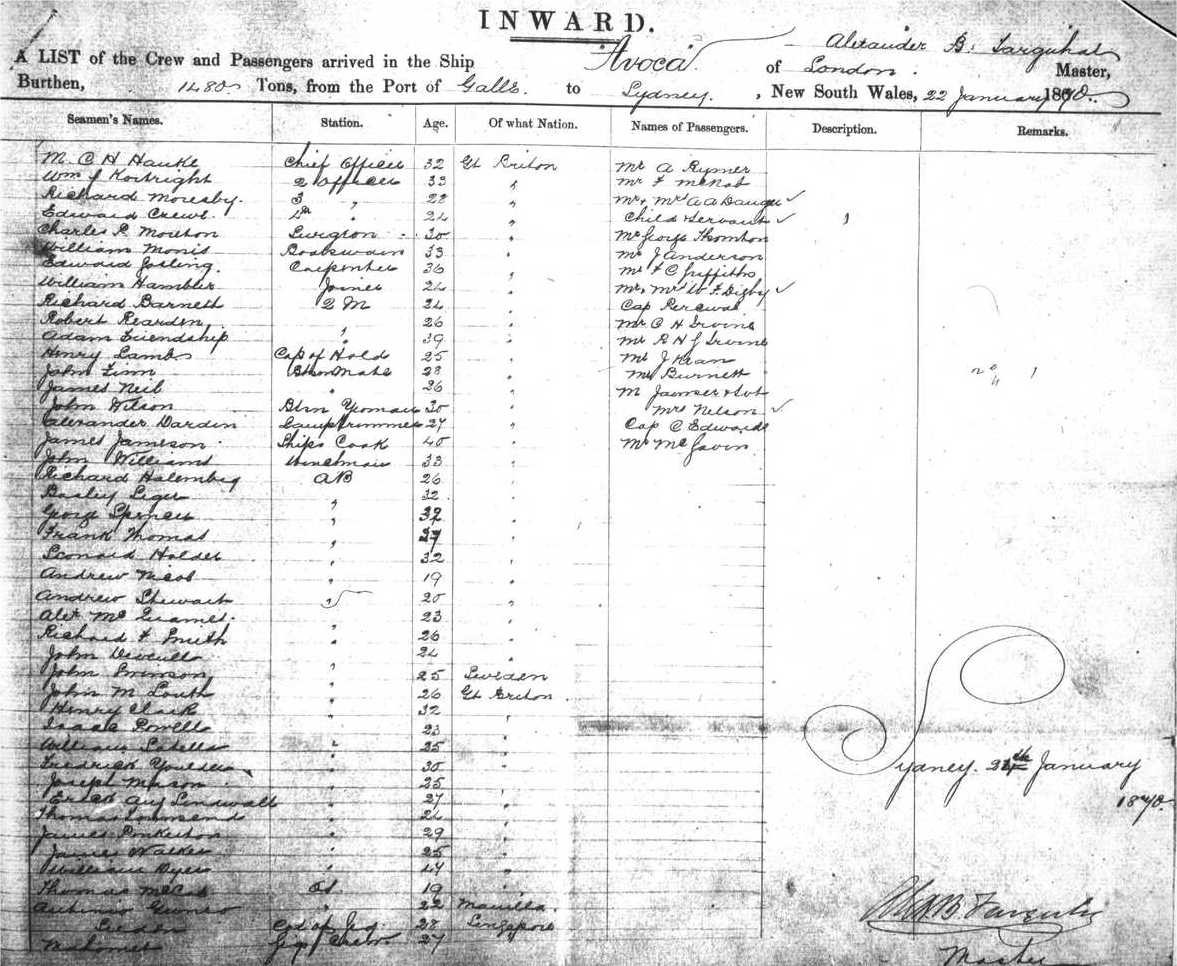 INWARD.
A LIST of the Crew and Passengers arrived in the Ship "Avoca" of London. Alexander B. Farquhar Master,
Burthen, 1480 Tons, from the Port of Galle. to Sydney. , New South Wales, 22 January 1870.
Seamen's Names. Station. Age. Of what Nation. Names of Passengers. Description. Remarks.
M C H Hauke Chief Officer 32 Gt Briton Mr A Rymer
Wm J Kortright 2 Officer 33 " Mr F McNab
Richard Moresby. 3 " 28 " Mr & Mrs A A
Edward Crewe. 4th " 24 " Child & Servant
Charles R Mouton Surgeon 30 " Mr George Thornton
William Monis Boatswain 33 " Mr J Anderson
Edward Josling. Carpenter 36 " Mr F C Griffiths
William Hambler Joiner 24 " Mr & Mrs W F Digby
Richard Barnett 2 M 24 " Cap Percival
Robert Rearden " 26 " Mr C H Irvine
Adam Friendship " 39 " Mr R H J Irvine
Henry Lambs Cap of Hold 25 " Mr J Kean
John Finn Bsun Mate 28 " Mr Burnett
James Neil " 26 " M
John Wilson Bsn Yoman 30 " Mrs Nelson
Alexander Dardin Lamp trimmer 27 " Cap C Edwards
James Jameson Ships Cook 40 " Mr McGavin
John Williams Winchman 33 "
Richard AB 26 "
32 "
George Spencer " 32 "
Frank Thomas " "
Leonard Holder " 32 "
Andrew Nicol " 19 "
Andrew Stewart " 20 "
Alex Mc " 23 "
Richard F Smith " 26 "
John " 24 "
John " 25 Sweden
John M Louth " 26 Gt Briton
Henry Clark " 32 "
Isaac Powell " 23 "
William " 25 "
Fredrick " 30 "
Joseph Mason " 25 "
Erick Aug Lindwall " 27 "
Thomas Townsend " 24 "
James Pinkerton " 29 "
James Walker " 25 "
William Dyer " 47 "
Thomas 19 "
Antonio " 22 Manilla
28 Singapore
Mahomet 27 "
Sydney. 24th January
1870.
Alex B. Farquhar
Master